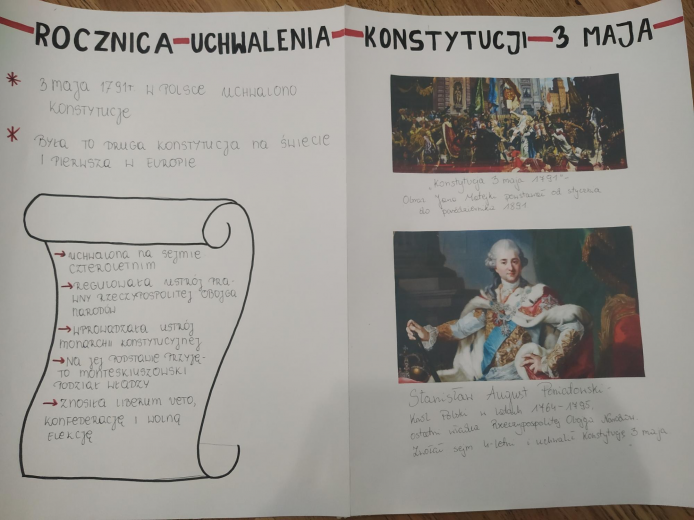 ROCZNICA-UCHWALENIA-KONSTYTUCJI-3 MAJA-
* 3 maja 1791r w Polsce uchwalono
konstytucję
* Była to druga konstytucja na świecie
i pierwsza w Europie
→ uchwalona na sejmie
czteroletnim
→ regulowała ustrój pra-
wny Rzeczypospolitej Obojga
Narodów
→ wprowadzała ustrój
monarchii konstytucyjnej
→ Na jej podstawie przyję-
to monteskiuszowski
podział władzy
→ znosiła liberum veto,
konfederację i wolną
elekcję
"Konstytucja 3 maja 1791"-
Obraz Jana Matejki powstawał od stycznia
do października 1891
Stanisław August Poniatowski -
Król Polski w latach 1764-1795,
ostatni władca Rzeczypospolitej Obojga Narodów.
Zwołał sejm 4-letni i uchwalił Konstytucję 3 maja